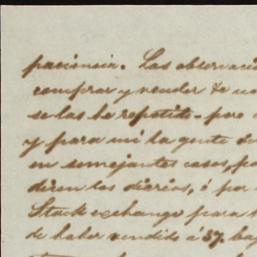 paciencia. Las observaci
comprar y vender de
se las he repetido - pero
y para mi la gente
en semejantes casos, pa
diren los diarios, ó por
Stock exchange para
de haber vendido á 57. baj